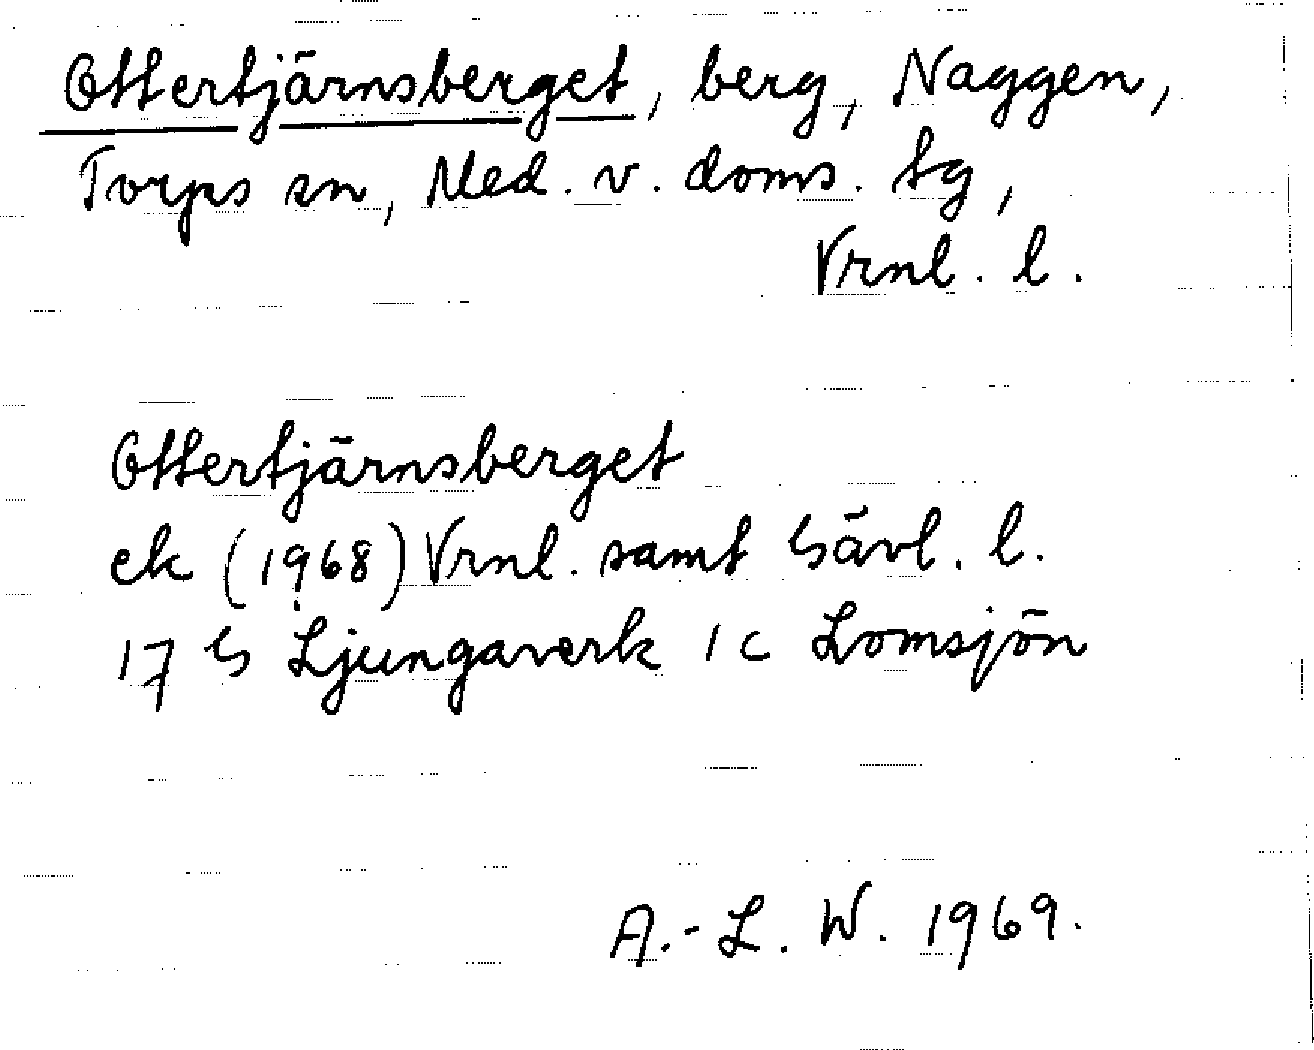 Ottertjärnsberget, berg, Naggen,
Torps sn, Med. v. doms. tg,
Vrnl. l.
Ottertjärnsberget
ek (1968) Vrnl. samt Gävl. l.
17 G Ljungaverk 1 c Lomsjön
A.-L. W. 1969.